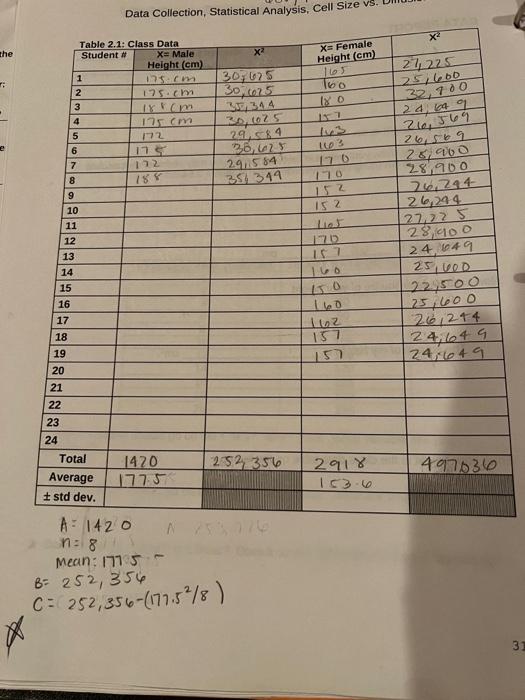 Data Collection, Statistical Analysis, Cell Size vs.
the
Table 2.1: Class Data
Student # X= Male Height (cm) X² X= Female Height (cm) X²
1 175.cm 30,625 165 27,225
2 175.cm 30,625 160 25,600
3 188cm 35,344 180 32,400
4 175 cm 30,625 157 24,649
5 172 29,584 163 26,569
6 175 30,625 163 26,569
7 172 29,584 170 28,900
8 188 35,344 170 28,900
9 152 26,244
10 152 26,244
11 165 27,225
12 170 28,900
13 157 24,649
14 160 25,600
15 150 22,500
16 160 25,600
17 162 26,244
18 157 24,649
19 157 24,649
20
21
22
23
24
Total 1420 252,356 2918 497036
Average 177.5 153.6
± std dev.
A= 1420
n= 8
Mean: 177.5
B= 252,356
C= 252,356-(177.5²/8)
31